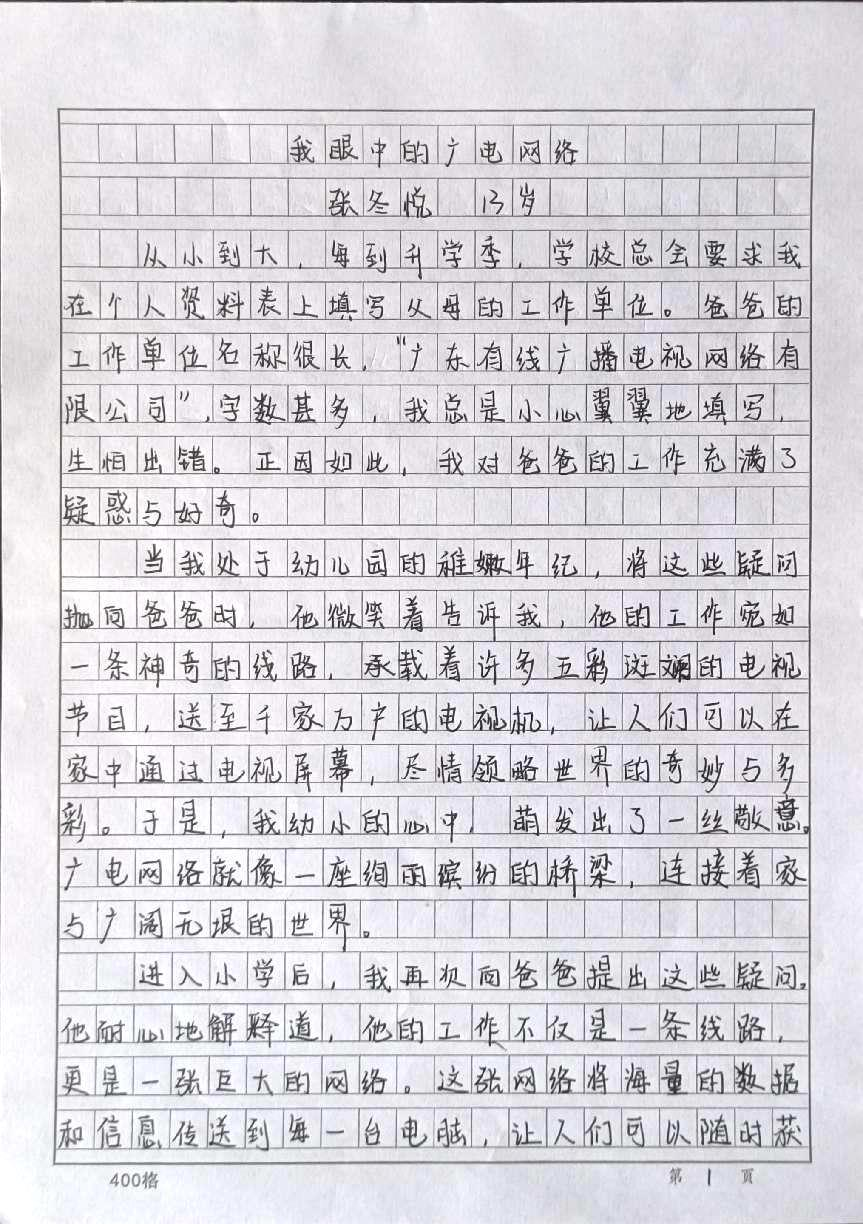 我眼中的广电网络
张冬悦 13岁
从小到大，每到升学季，学校总会要求我
在个人资料表上填写父母的工作单位。爸爸的
工作单位名称很长，“广东有线广播电视网络有
限公司”，字数甚多，我总是小心翼翼地填写，
生怕出错。正因如此，我对爸爸的工作充满了
疑惑与好奇。
当我处于幼儿园的稚嫩年纪，将这些疑问
抛向爸爸时，他微笑着告诉我，他的工作宛如
一条神奇的线路，承载着许多五彩斑斓的电视
节目，送至千家万户的电视机，让人们可以在
家中通过电视屏幕，尽情领略世界的奇妙与多
彩。于是，我幼小的心中，萌发出了一丝敬意。
广电网络就像一座绚丽缤纷的桥梁，连接着家
与广阔无垠的世界。
进入小学后，我再次向爸爸提出这些疑问。
他耐心地解释道，他的工作不仅是一条线路，
更是一张巨大的网络。这张网络将海量的数据
和信息传送到每一台电脑，让人们可以随时获
400格
第 1 页